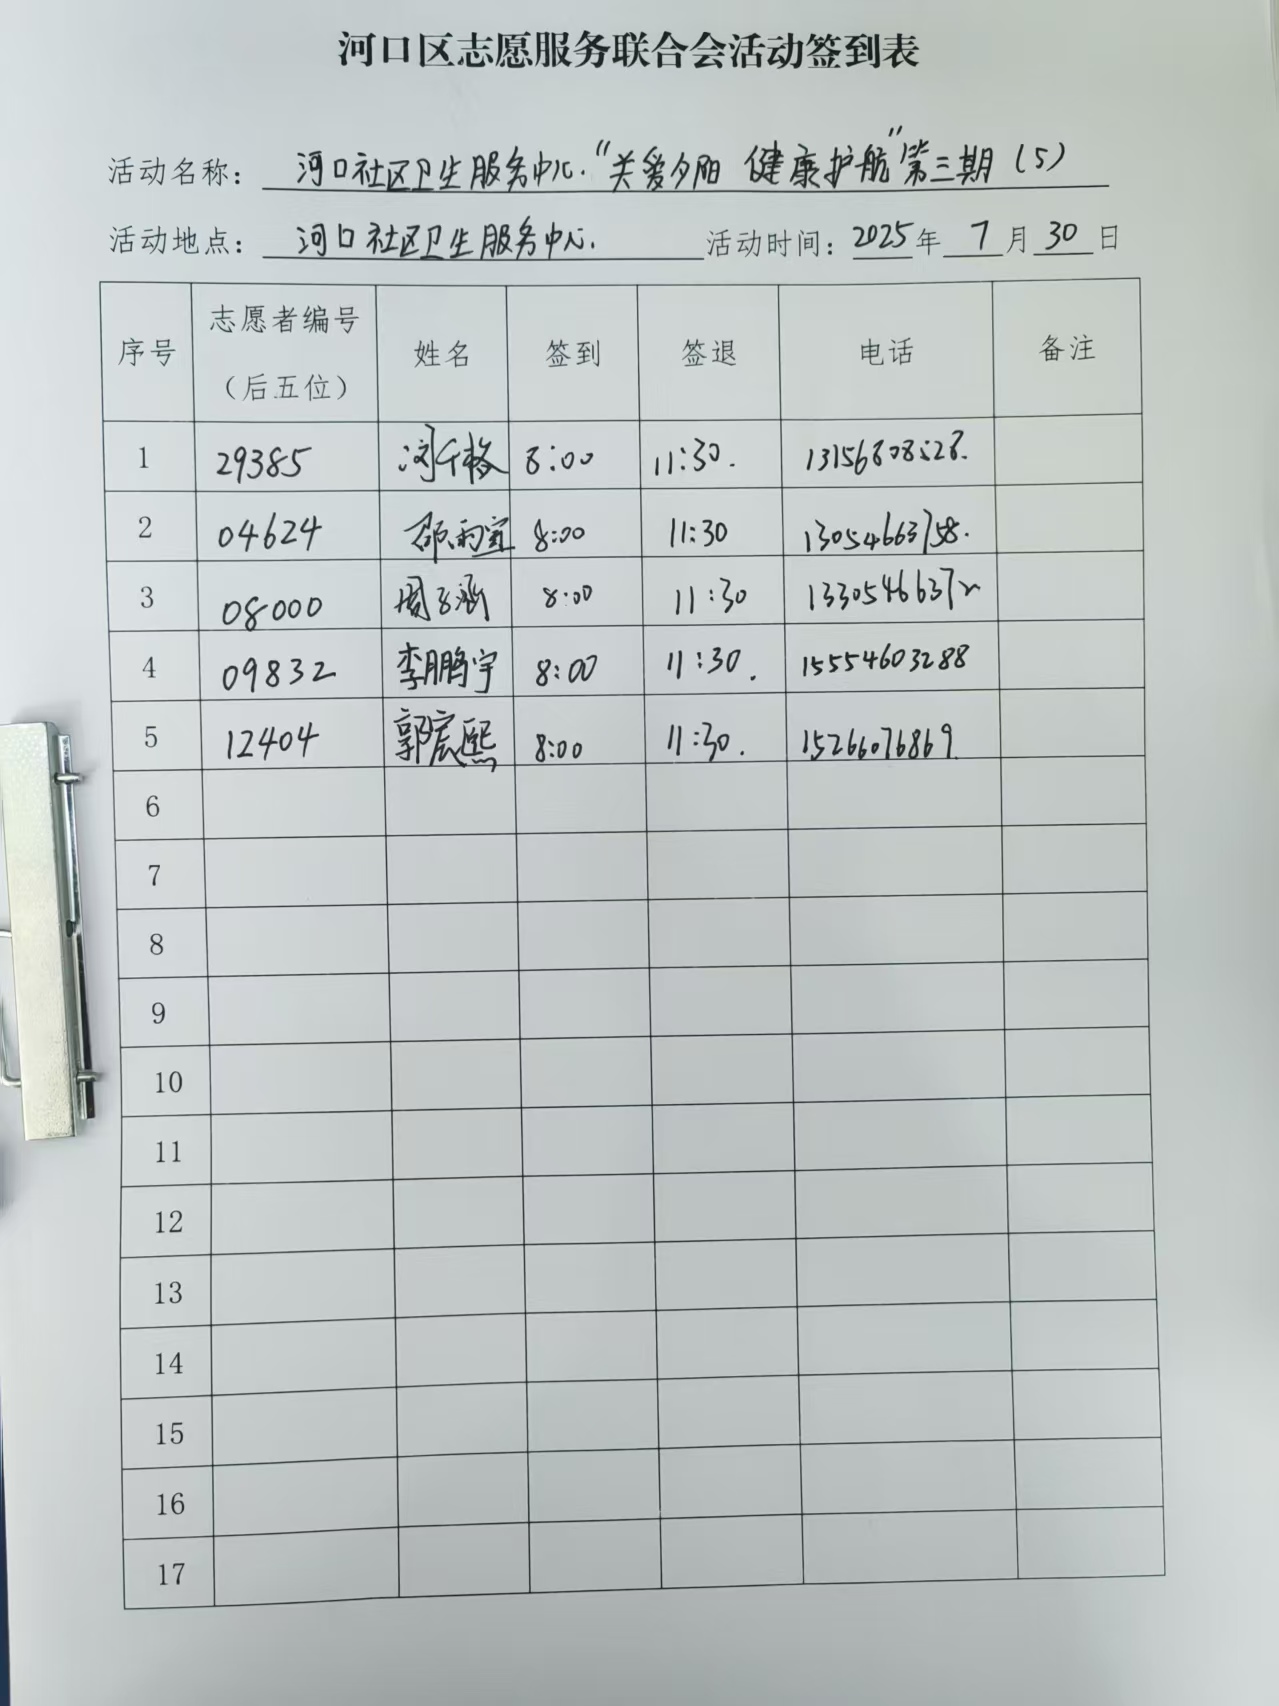 河口区志愿服务联合会活动签到表
活动名称： 河口社区卫生服务中心“关爱夕阳 健康护航”第三期（5）
活动地点： 河口社区卫生服务中心. 活动时间：2025年 7月30日
序号 志愿者编号（后五位） 姓名 签到 签退 电话 备注
1 29385 8:00 11:30. 13156808528.
2 04624 邵雨宣 8:00 11:30 13054663758.
3 08000 周子涵 8:00 11:30
4 09832 李鹏宇 8:00 11:30. 15554603288
5 12404 郭宸熙 8:00 11:30. 15266076869.
6
7
8
9
10
11
12
13
14
15
16
17